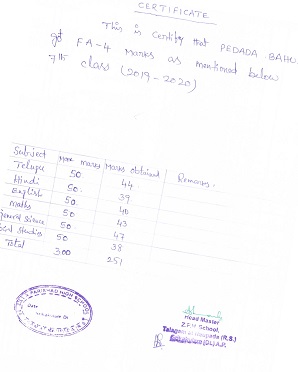 CERTIFICATE
This is certify that PEDADA BAHU
got FA-4 Marks as mentioned below
7th class (2019-2020)
Subject Max Marks Marks obtained Remarks.
Telugu 50 44
Hindi 50. 39
English 50. 40
Maths 50. 43
General Science 50 47
Social Studies 50 38
Total 300 251
PARISHAD HIGH SCHOOL
Date
Head Master
Z.P.H School,
(R.S.)
(Dt.) A.P.